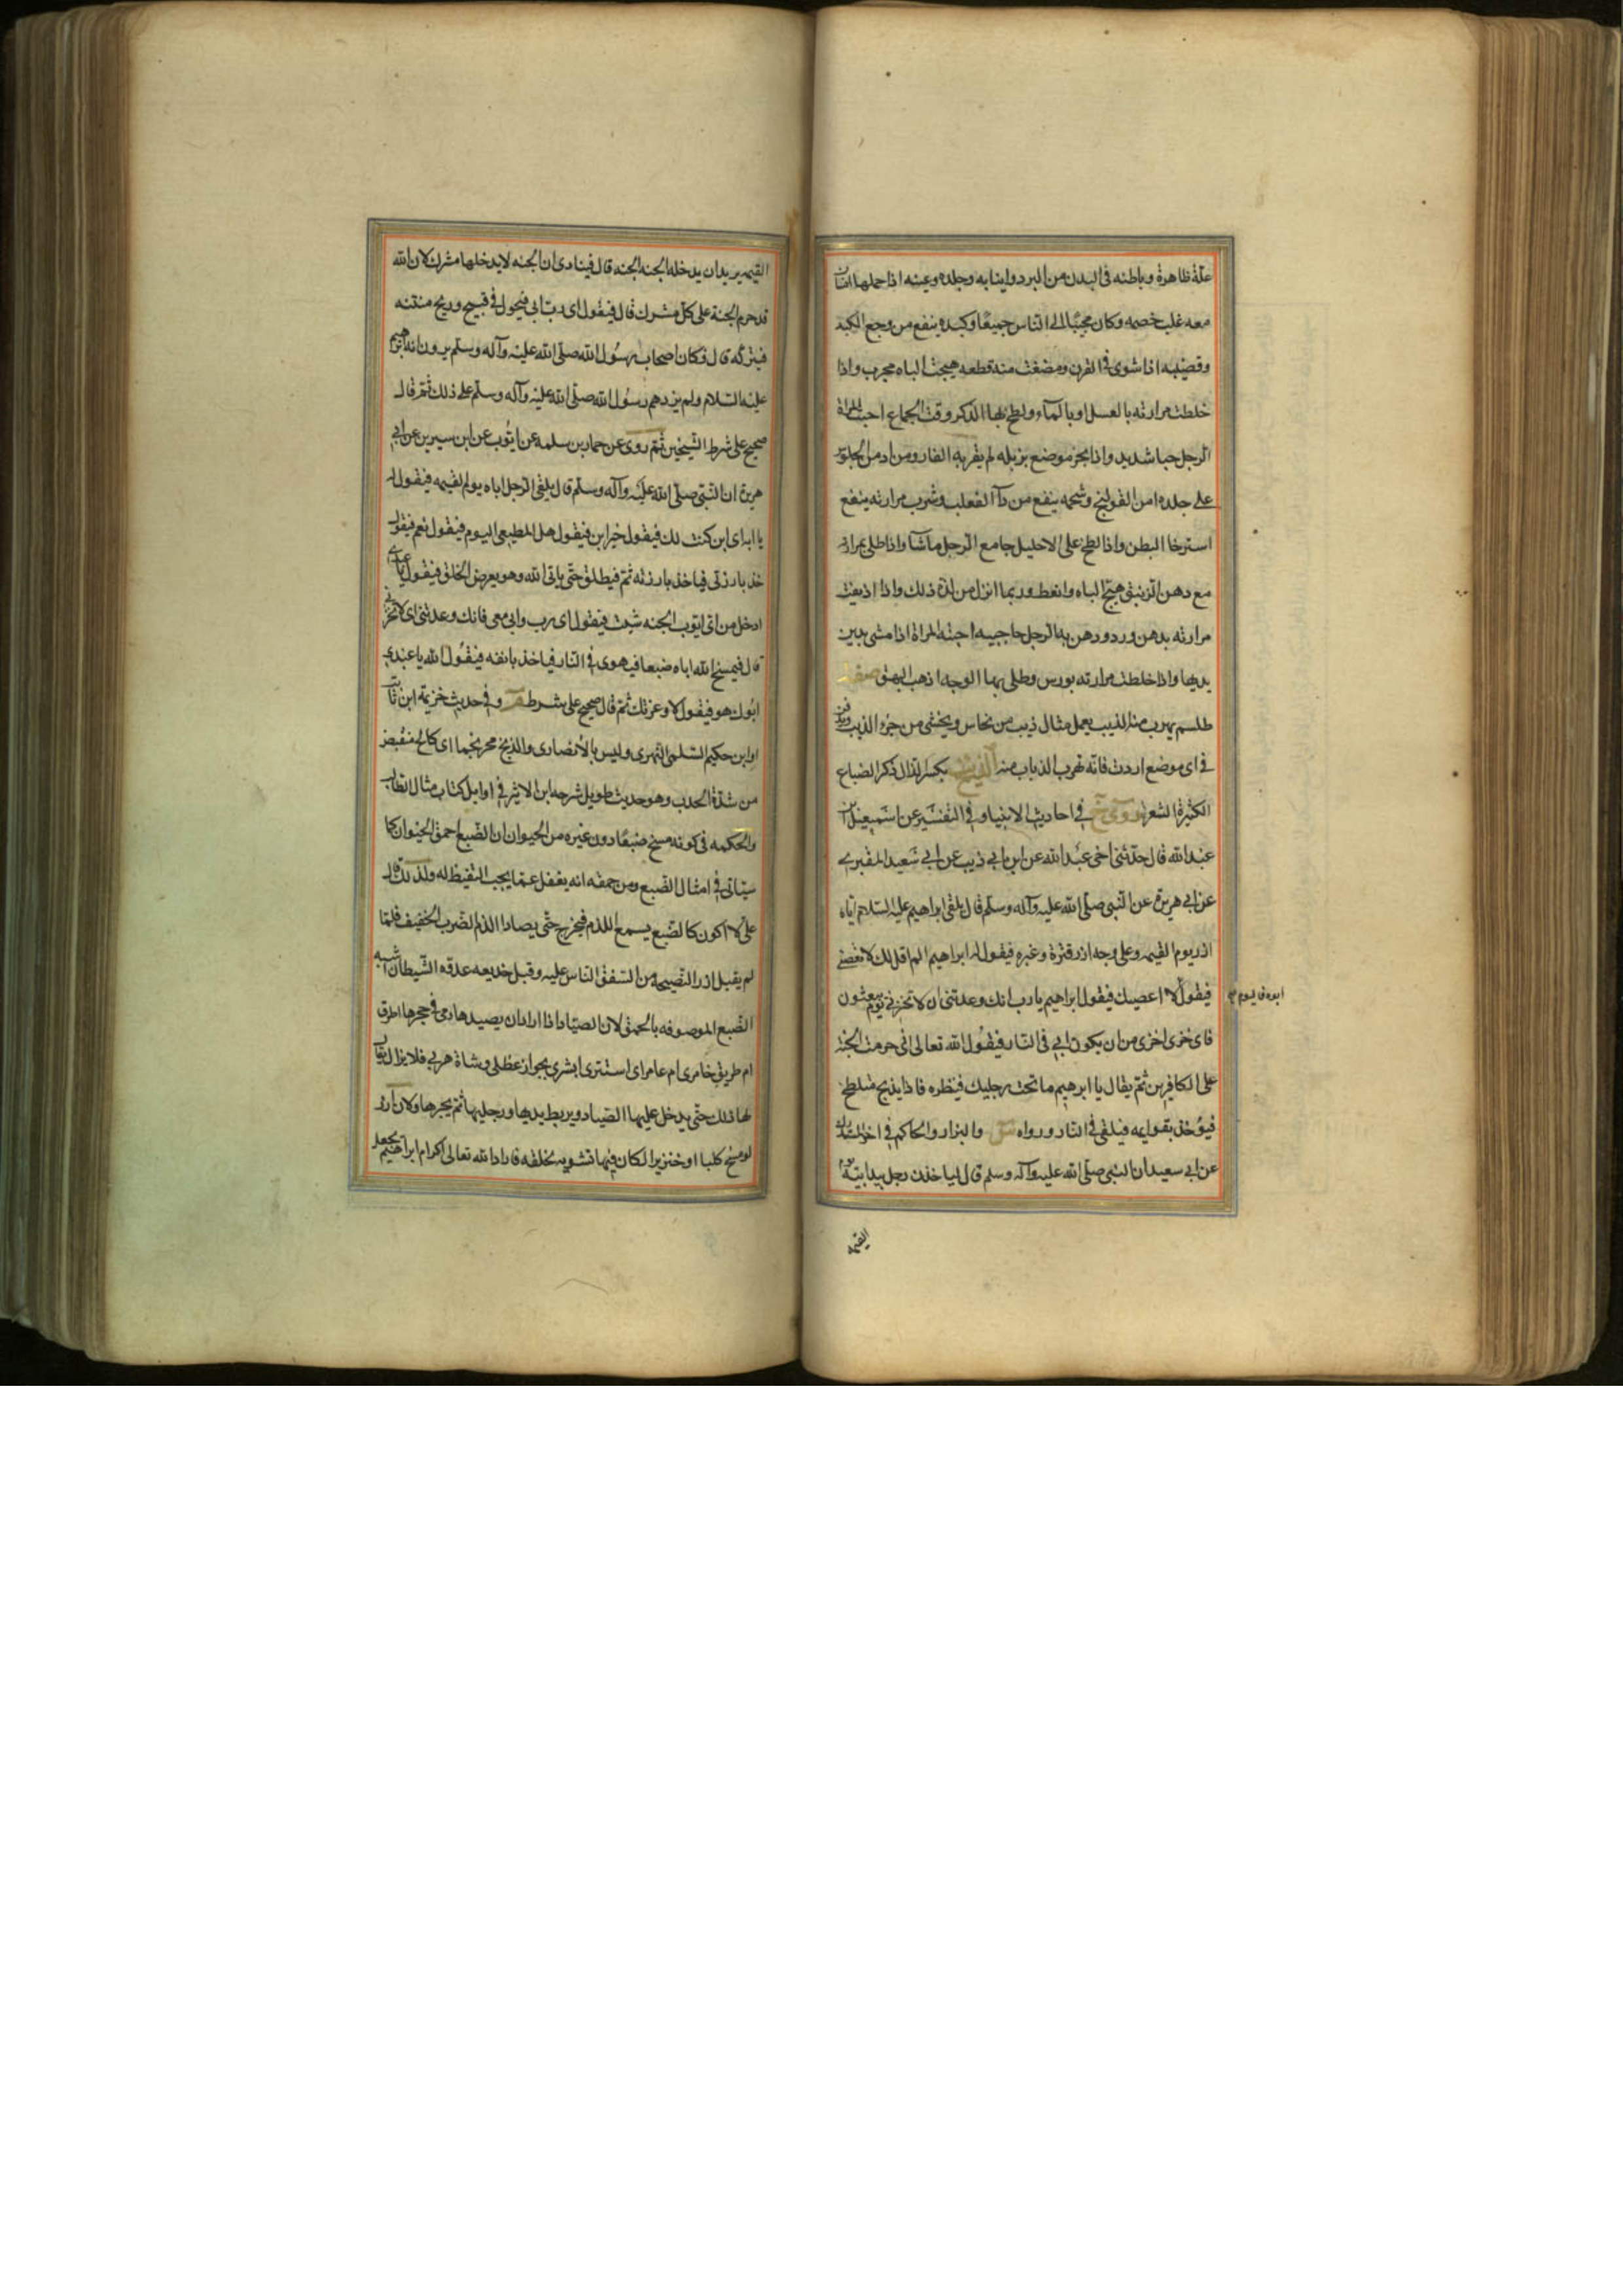 علة ظاهرة وباطنه فى البدن من البرد وانيابه وجلده وعينه اذا حملها انسان
معه غلب خصمه وكان محببا الى الناس جميعا وكبده ينفع من وجع الكبد
وقضيبه اذا شوى فى الفرن ومضغت منه قطعه هيجت الباه مجرب واذا
خلطت مرارته بالعسل او بالمآء ولطخ بها الذكر وقت الجماع احبت المراة
الرجل حبا شديد واذا بخر موضع بزبله لم يقربه الفار ومن ادمن الجلوس
على جلده امن القولنج وشحمه ينفع من دآ الثعلب وشرب مرارته ينفع
استرخا البطن واذا لطخ على الاحليل جامع الرجل ماشآ واذا طلى بمرارته
مع دهن الزنبق هيج الباه وانعظ وربما انزل من لذة ذلك واذا اذيفت
مرارته بدهن ورد ودهن به الرجل حاجبيه احبته المراة اذا مشى بين
يديها واذا خلطت مرارته بورس وطلى بها الوجه اذهب البهق صفة
طلسم يهرب منه الذيب يعمل مثال ذيب من نحاس ويدفن
فى اى موضع اردت فانه تهرب الذياب منه الذيخ بكسر الذال ذكر الضباع
الكثيرة الشعر روى خ فى احاديث الانبيا وفى التفسير عن اسمعيل بن
عبد الله قال حدثنى اخى عبد الله عن ابن ابى ذيب عن ابى سعيد المقبرى
عن ابى هريرة عن النبى صلى الله عليه وآله وسلم قال يلقى ابراهيم عليه السلام اباه
اذر يوم القيمه وعلى وجه اذر قترة وغبره فيقول له ابراهيم الم اقل لك لا تعصنى
فيقول لا اعصيك فيقول ابراهيم يا رب انك وعدتنى ان لا تخزنى يوم يبعثون
ابوه فاليوم
فاى خزى اخزى من ان يكون ابى فى النار فيقول الله تعالى انى حرمت الجنة
على الكافرين ثم يقال يا ابرهيم ما تحت رجليك فينظره فاذا بذيخ متلطخ
فيؤخذ بقوايمه فيلقى فى النار ورواه والبزار والحاكم فى اخر المستدرك
عن ابى سعيد ان النبى صلى الله عليه وآله وسلم قال لياخذن رجل بيد ابيه يوم
القيمه
القيمه يريد ان يدخله الجنه الجنه قال فينادى ان الجنه لا يدخلها مشرك لان الله
قد حرم الجنة على كل مشرك قال فيقول اى رب ابى فيحول فى قبيح وريح منتنه
فيتركه قال فكان اصحاب رسول الله صلى الله عليه وآله وسلم يرون انه ابراهيم
عليه السلام ولم يزدهم رسول الله صلى الله عليه وآله وسلم على ذلك ثم قال
صحيح على شرط الشيخين ثم روى عن حماد بن سلمه عن ايوب عن ابن سيرين عن ابى
هريرة ان النبى صلى الله عليه وآله وسلم قال يلقى الرجل اباه يوم القيمه فيقول له
يا ابه اى ابن كنت لك فيقول خير ابن فيقول هل انت مطيعى اليوم فيقول نعم فيقول
خذ بازرتى فياخذ بازرته ثم فيطلق حتى ياتى الله وهو يعرض الخلق فيقول يا عبدى
ادخل من اى ابوب الجنه شيت فيقول اى رب وابى معى فانك وعدتنى اى لا تخزنى
قال فيمسخ الله اباه ضبعا فيهوى فى النار فياخذ بانفه فيقول الله يا عبدى
ابوك هو فيقول لا وعزتك ثم قال صحيح على شرط م وفى حديث خزيمة ابن ثابت
او ابن حكيم السلمى البهزى وليس بالانصارى والذيخ محرنجما اى كالح منقبض
من شدة الجدب وهو حديث طويل شرحه ابن الاثير فى اوايل كتاب مثال الطالب
والحكمه فى كونه مسخ ضبعا دون غيره من الحيوان ان الضبع احمق الحيوان كما
سياتى فى امثال الضبع ومن حمقه انه يغفل عما يجب التيقظ له ولذلك قال
على لا اكون كالضبع يسمع اللدم فيخرج حتى يصاد اللدم الضرب الخفيف فلما
لم يقبل اذر النصيحه من اشفق الناس عليه وقبل خديعه عدوه الشيطان اشبه
الضبع الموصوفه بالحمق لان الصياد اذا اراد ان يصيدها رمى فى حجرها اطرق
ام طريق خامرى ام عامر اى استترى ابشرى بجراد عظلى وشاة هربى فلا يزال يقال
لها ذلك حتى يدخل عليها الصياد ويربط يديها ورجليها ثم يجرها ولان ازر
لو مسخ كلبا او خنزيرا لكان فيها تشويه لخلقه فاراد الله تعالى اكرام ابراهيم بجعل